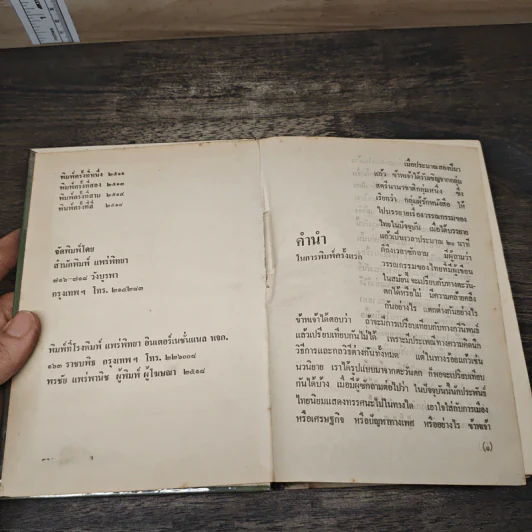 พิมพ์ครั้งที่หนึ่ง ๒๕๑๑
พิมพ์ครั้งที่สอง ๒๕๑๓
พิมพ์ครั้งที่สาม ๒๕๑๔
พิมพ์ครั้งที่สี่ ๒๕๑๘
จัดพิมพ์โดย
สำนักพิมพ์ แพร่พิทยา
๗๑๖-๗๑๘ วังบูรพา
กรุงเทพฯ โทร. ๒๑๔๒๘๓
พิมพ์ที่โรงพิมพ์ แพร่พิทยา อินเตอร์เนชั่นแนล หจก.
ราชบพิธ กรุงเทพฯ โทร. ๒๒๖๐๐๘
พรชัย แพร่พานิช ผู้พิมพ์ ผู้โฆษณา ๒๕๑๘
คำนำ
ในการพิมพ์ครั้งแรก
เมื่อประมาณสองปีมา
แล้ว ข้าพเจ้าได้รับเชิญจากกลุ่ม
สตรีนานาชาติกลุ่มหนึ่ง ซึ่ง
เรียกว่า กลุ่มผู้รักหนังสือ ให้
ไปบรรยายเรื่องวรรณกรรมของ
ไทยในปัจจุบัน เมื่อได้บรรยาย
แล้วเป็นเวลาประมาณ ๒๐ นาที
ก็ถึงเวลาซักถาม มีผู้ถามว่า
วรรณกรรมของไทยที่มีผู้เขียน
ในสมัยนี้ จะเปรียบกับทางตะวัน-
ตกได้หรือไม่ มีความคล้ายคลึง
กันอย่างไร แตกต่างกันอย่างไร
ข้าพเจ้าได้ตอบว่า ถ้าจะมีการเปรียบเทียบกับทางที่นานมา
แล้วเปรียบเทียบกันไม่ได้ เพราะมีประเภททางความคิดนึก
วิธีการและกลวิธีต่างกันทั้งหมด แต่ในทางร้อยแก้วเช่น
นวนิยาย เราได้รูปแบบมาจากตะวันตก ก็พอจะเปรียบเทียบ
กันได้บ้าง เมื่อมีผู้ซักถามต่อไปว่า ในปัจจุบันนี้นักประพันธ์
ไทยนิยมแสดงทรรศนะไปในทางใด เอาใจใส่กับการเมือง
หรือเศรษฐกิจ หรือปัญหาทางเพศ หรืออย่างไร ข้าพเจ้า
(๑)